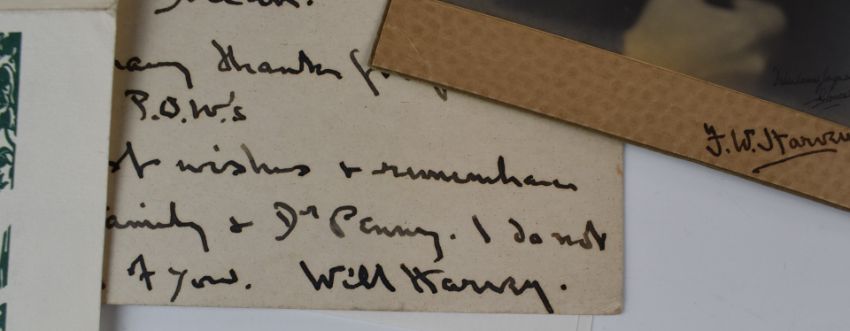 many thanks f
P.O.W.'s
st wishes & remembrance
amily & Dr Penny. I do not
of you. Will Harvey.
F.W. Harvey